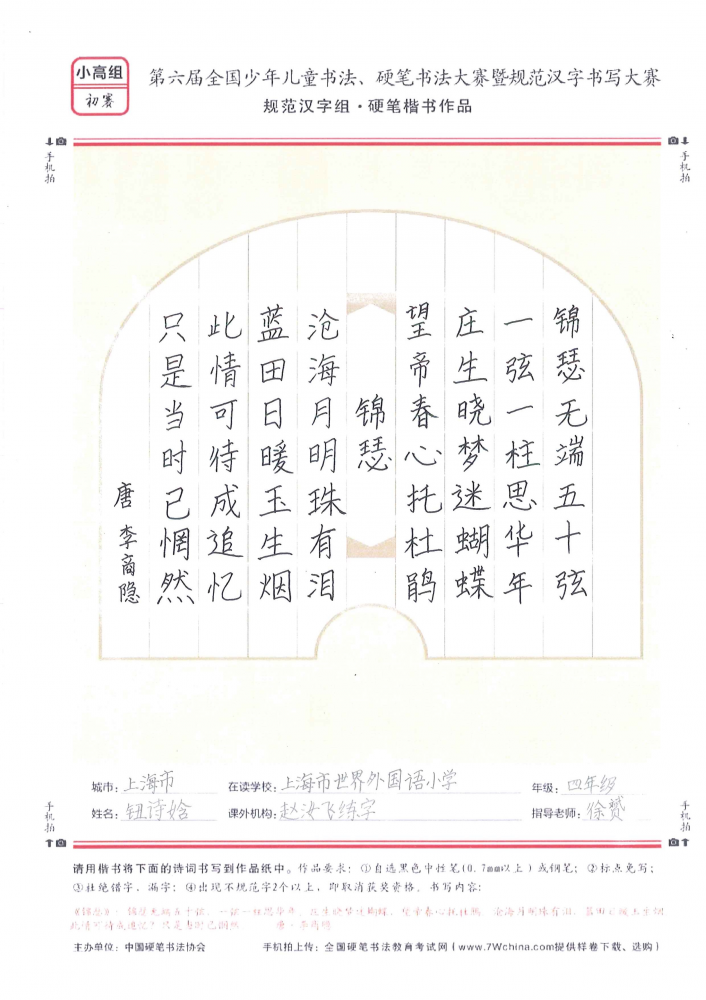 小高组
初赛
第六届全国少年儿童书法、硬笔书法大赛暨规范汉字书写大赛
规范汉字组·硬笔楷书作品
手机拍
手机拍
锦瑟无端五十弦
一弦一柱思华年
庄生晓梦迷蝴蝶
望帝春心托杜鹃
锦瑟
沧海月明珠有泪
蓝田日暖玉生烟
此情可待成追忆
只是当时已惘然
唐 李商隐
城市：上海市 在读学校：上海市世界外国语小学 年级：四年级
姓名：钮诗晗 课外机构：赵汝飞练字 指导老师：徐赟
手机拍
手机拍
请用楷书将下面的诗词书写到作品纸中。作品要求：①自选黑色中性笔(0.7mm以上)或钢笔；②标点免写；
③杜绝错字、漏字；④出现不规范字2个以上，即取消获奖资格。书写内容：
《锦瑟》：锦瑟无端五十弦，一弦一柱思华年。庄生晓梦迷蝴蝶，望帝春心托杜鹃。沧海月明珠有泪，蓝田日暖玉生烟
此情可待成追忆？只是当时已惘然 唐·李商隐
主办单位：中国硬笔书法协会 手机拍上传：全国硬笔书法教育考试网（www.7Wchina.com提供样卷下载、选购）